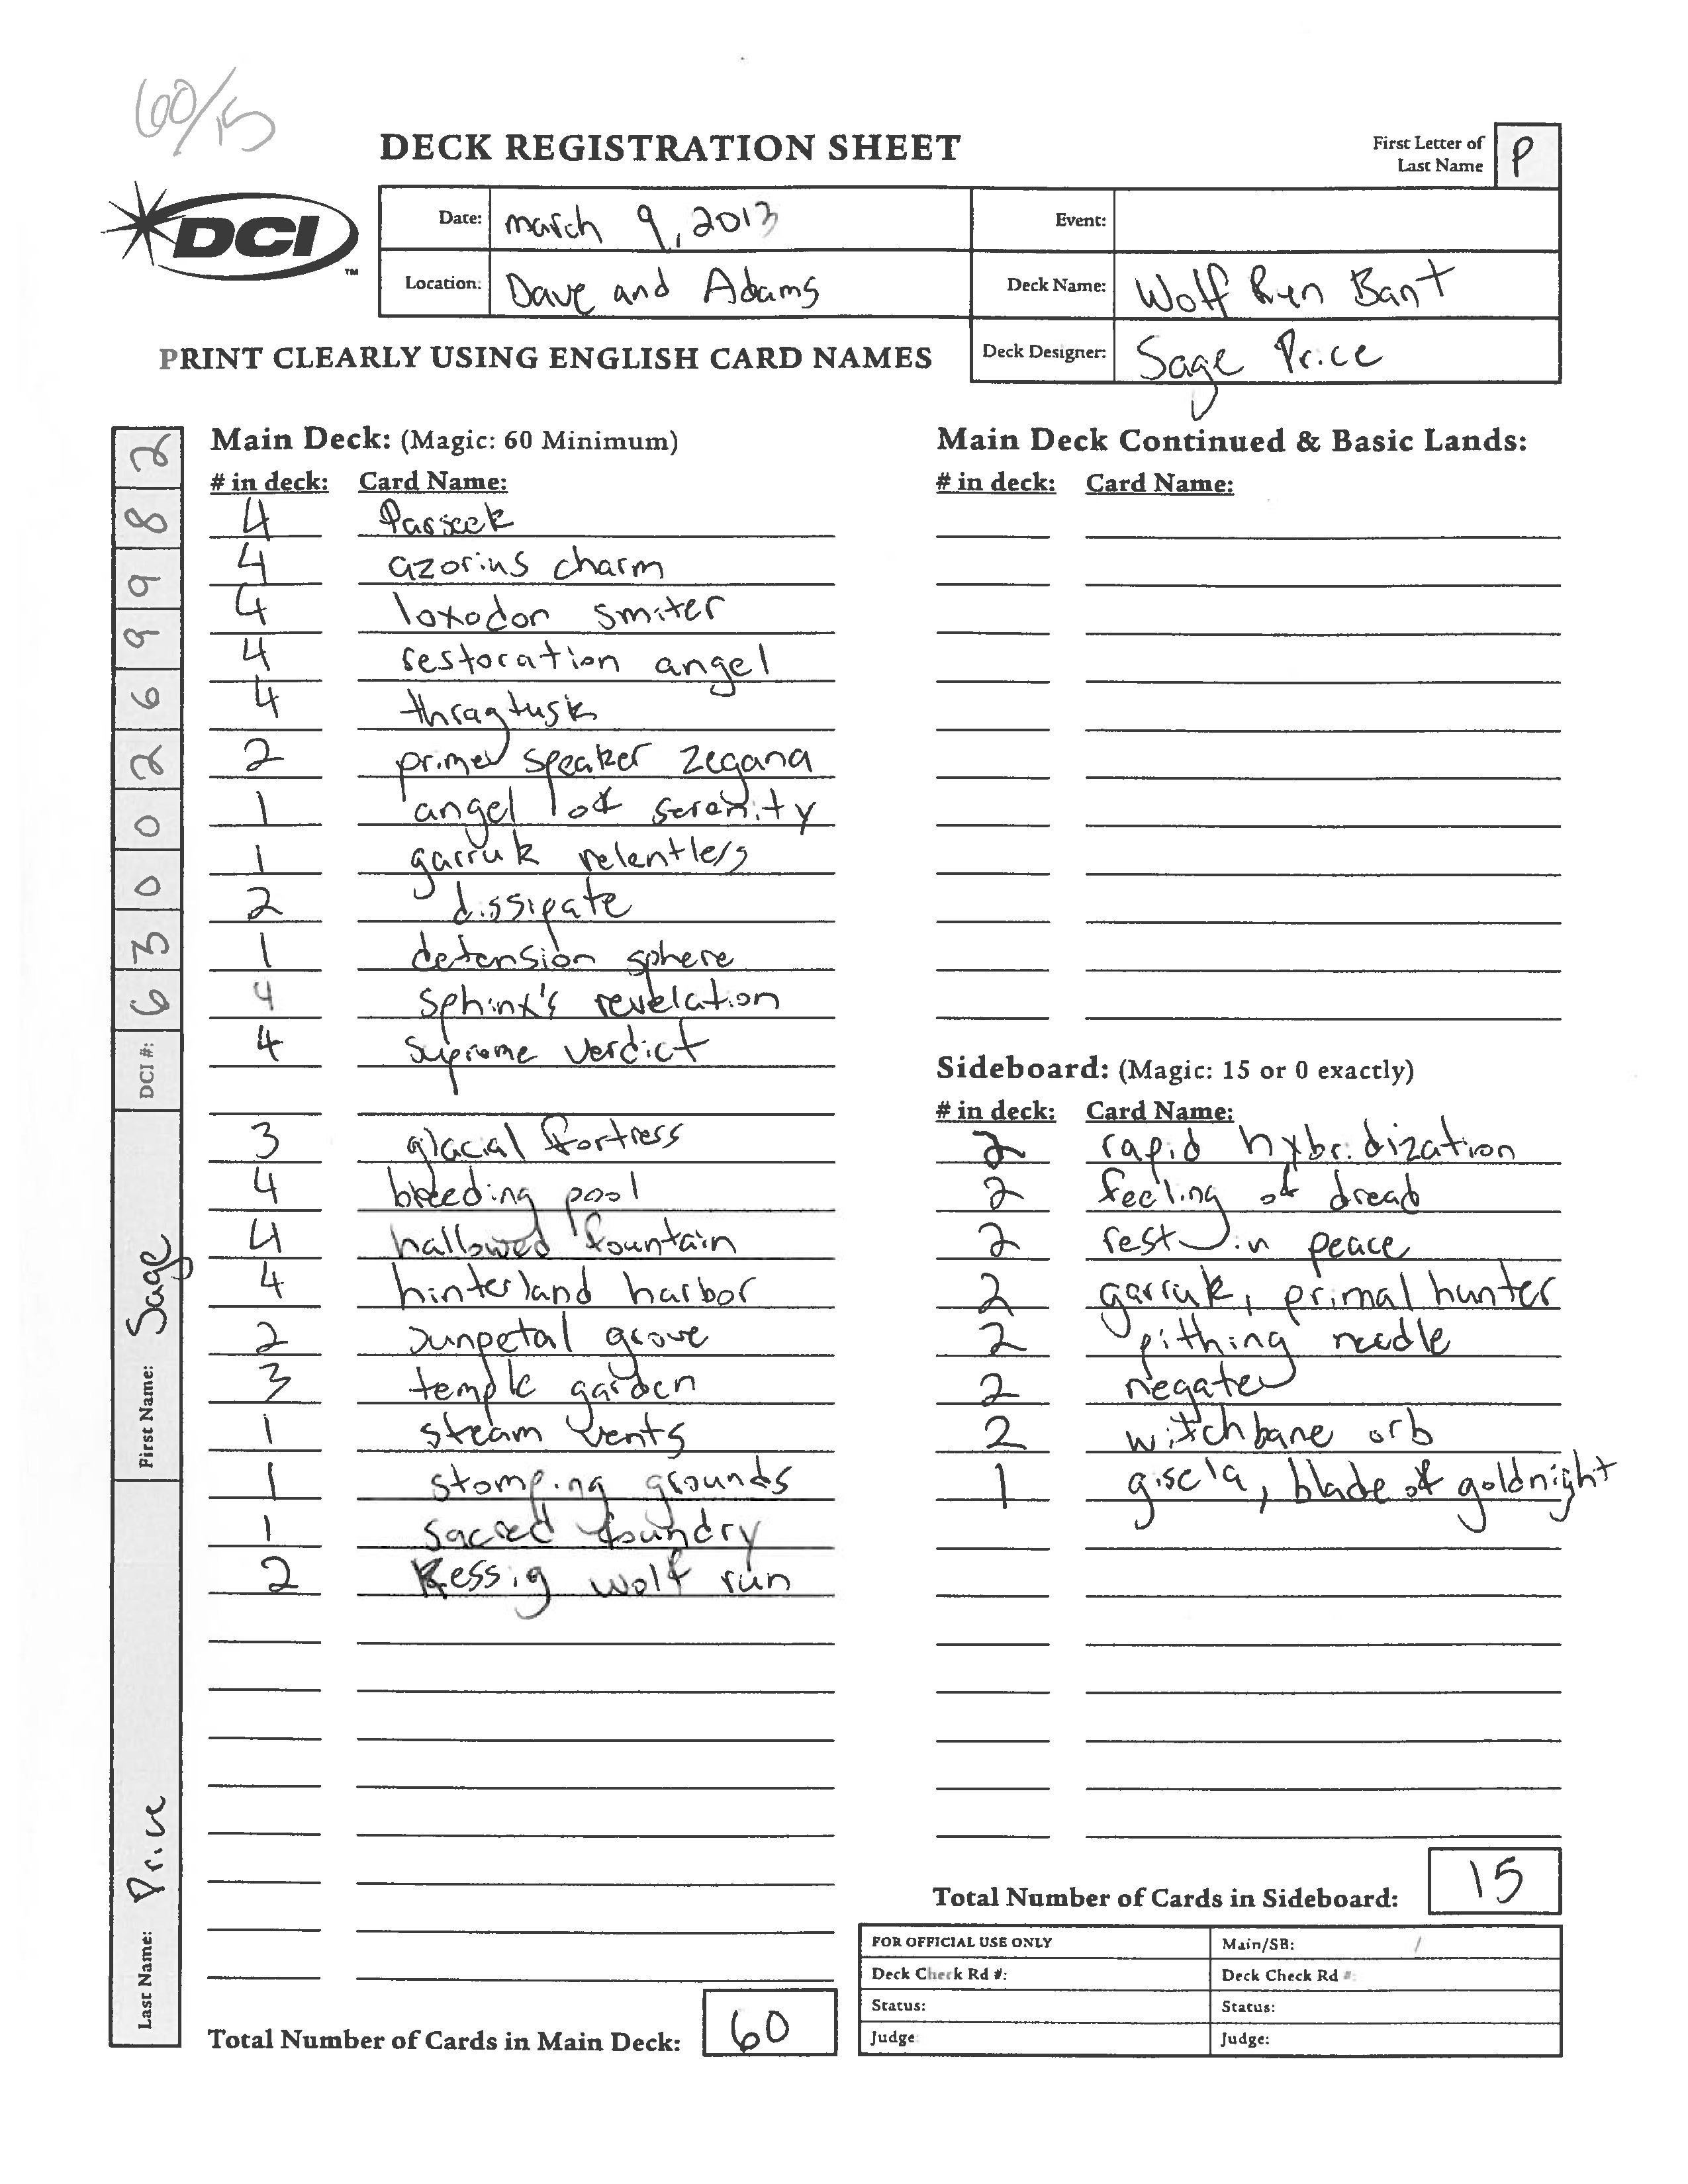 60/15
DECK REGISTRATION SHEET
First Letter of
Last Name
P
DCI
TM
Date: march 9, 2013
Event:
Location: Dave and Adams
Deck Name: Wolf Run Bant
PRINT CLEARLY USING ENGLISH CARD NAMES
Deck Designer: Sage Price
Last Name: Price First Name: Sage DCI #: 6 3 0 0 2 6 9 9 8 2
Main Deck: (Magic: 60 Minimum)
# in deck: Card Name:
4 Farseek
4 azorius charm
4 loxodon smiter
4 restoration angel
4 thragtusk
2 prime speaker zegana
1 angel of serenity
1 garruk relentless
2 dissipate
1 detension sphere
4 sphinx's revelation
4 supreme verdict
3 glacial fortress
4 breeding pool
4 hallowed fountain
4 hinterland harbor
2 sunpetal grove
3 temple garden
1 steam vents
1 stomping grounds
1 sacred foundry
2 Kessig wolf run
Total Number of Cards in Main Deck: 60
Main Deck Continued & Basic Lands:
# in deck: Card Name:
Sideboard: (Magic: 15 or 0 exactly)
# in deck: Card Name:
2 rapid hybridization
2 feeling of dread
2 rest in peace
2 garruk, primal hunter
2 pithing needle
2 negate
2 witchbane orb
1 gisela, blade of goldnight
Total Number of Cards in Sideboard: 15
FOR OFFICIAL USE ONLY
Main/SB: /
Deck Check Rd #:
Deck Check Rd #:
Status:
Status:
Judge:
Judge: